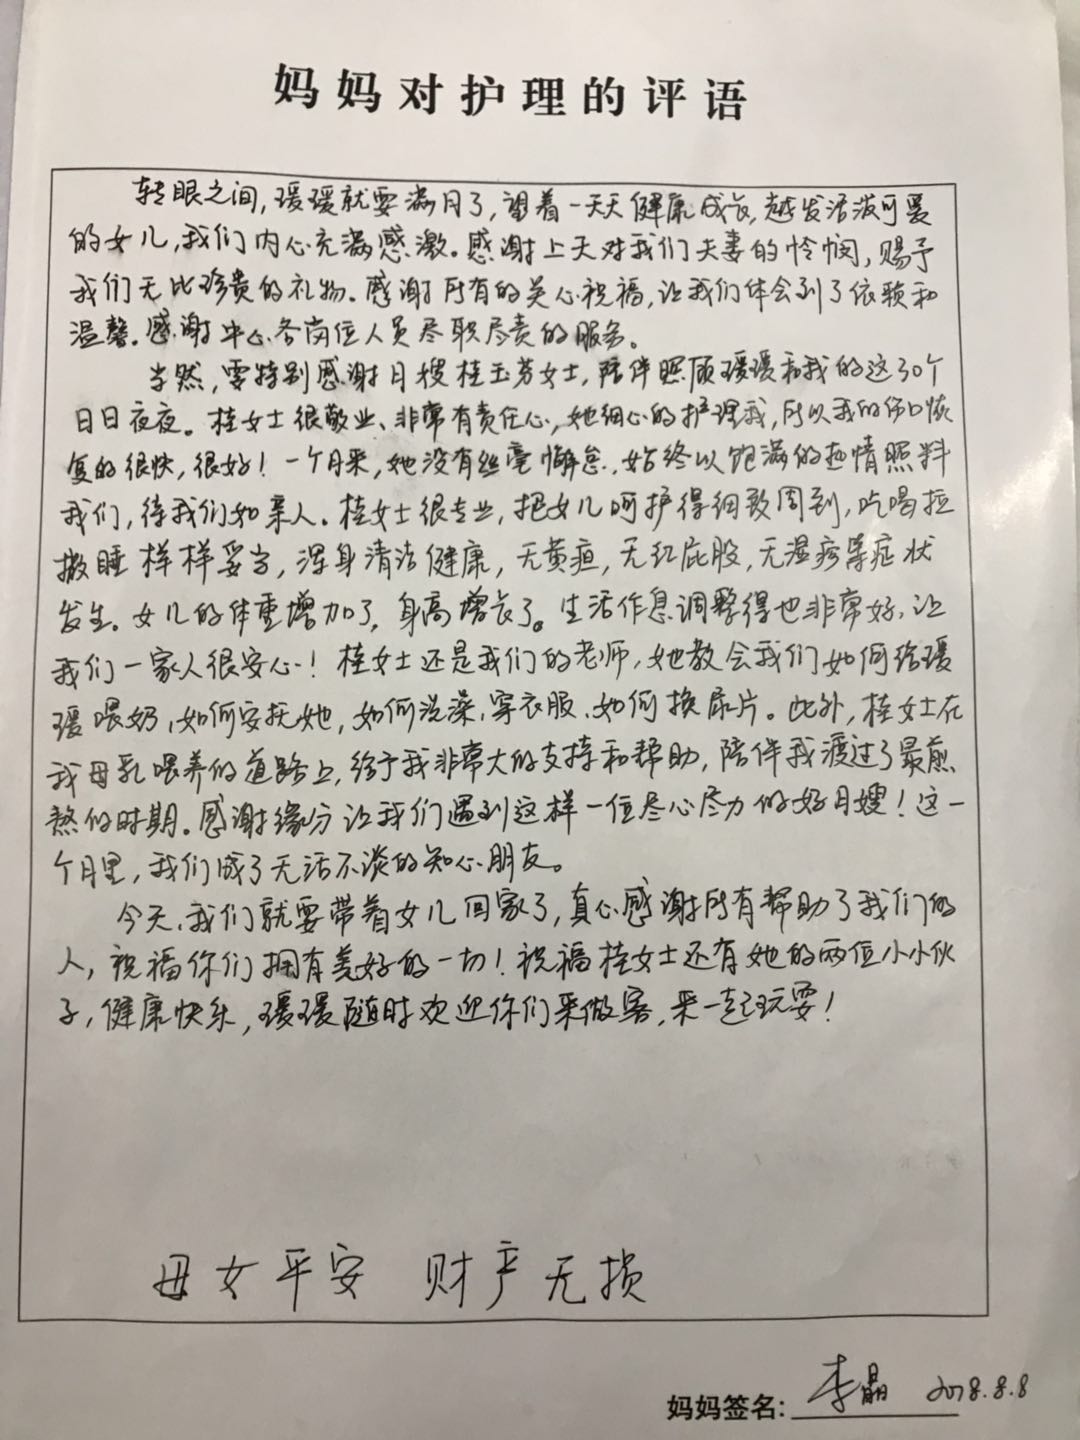 妈妈对护理的评语
转眼之间,瑗瑗就要满月了,望着一天天健康成长,越发活泼可爱
的女儿,我们内心充满感激。感谢上天对我们夫妻的怜悯,赐予
我们无比珍贵的礼物。感谢所有的关心祝福,让我们体会到了依赖和
温馨。感谢中心各岗位人员尽职尽责的服务。
当然,要特别感谢月嫂桂玉芳女士,陪伴照顾瑗瑗和我的这30个
日日夜夜。桂女士很敬业、非常有责任心,她细心的护理我,所以我的伤口恢
复的很快,很好!一个月来,她没有丝毫懈怠,始终以饱满的热情照料
我们,待我们如亲人。桂女士很专业,把女儿呵护得细致周到,吃喝拉
撒睡样样妥当,浑身清洁健康,无黄疸,无红屁股,无湿疹等症状
发生。女儿的体重增加了,身高增长了。生活作息调整得也非常好,让
我们一家人很安心!桂女士还是我们的老师,她教会我们如何给瑗
瑗喂奶,如何安抚她,如何洗澡,穿衣服、如何换尿片。此外,桂女士在
我母乳喂养的道路上,给予我非常大的支持和帮助,陪伴我渡过了最煎
熬的时期。感谢缘分让我们遇到这样一位尽心尽力的好月嫂!这一
个月里,我们成了无话不谈的知心朋友。
今天,我们就要带着女儿回家了,真心感谢所有帮助了我们的
人,祝福你们拥有美好的一切!祝福桂女士还有她的两位小小伙
子,健康快乐,瑗瑗随时欢迎你们来做客,来一起玩耍!
母女平安 财产无损
妈妈签名: 李晶 2018.8.8